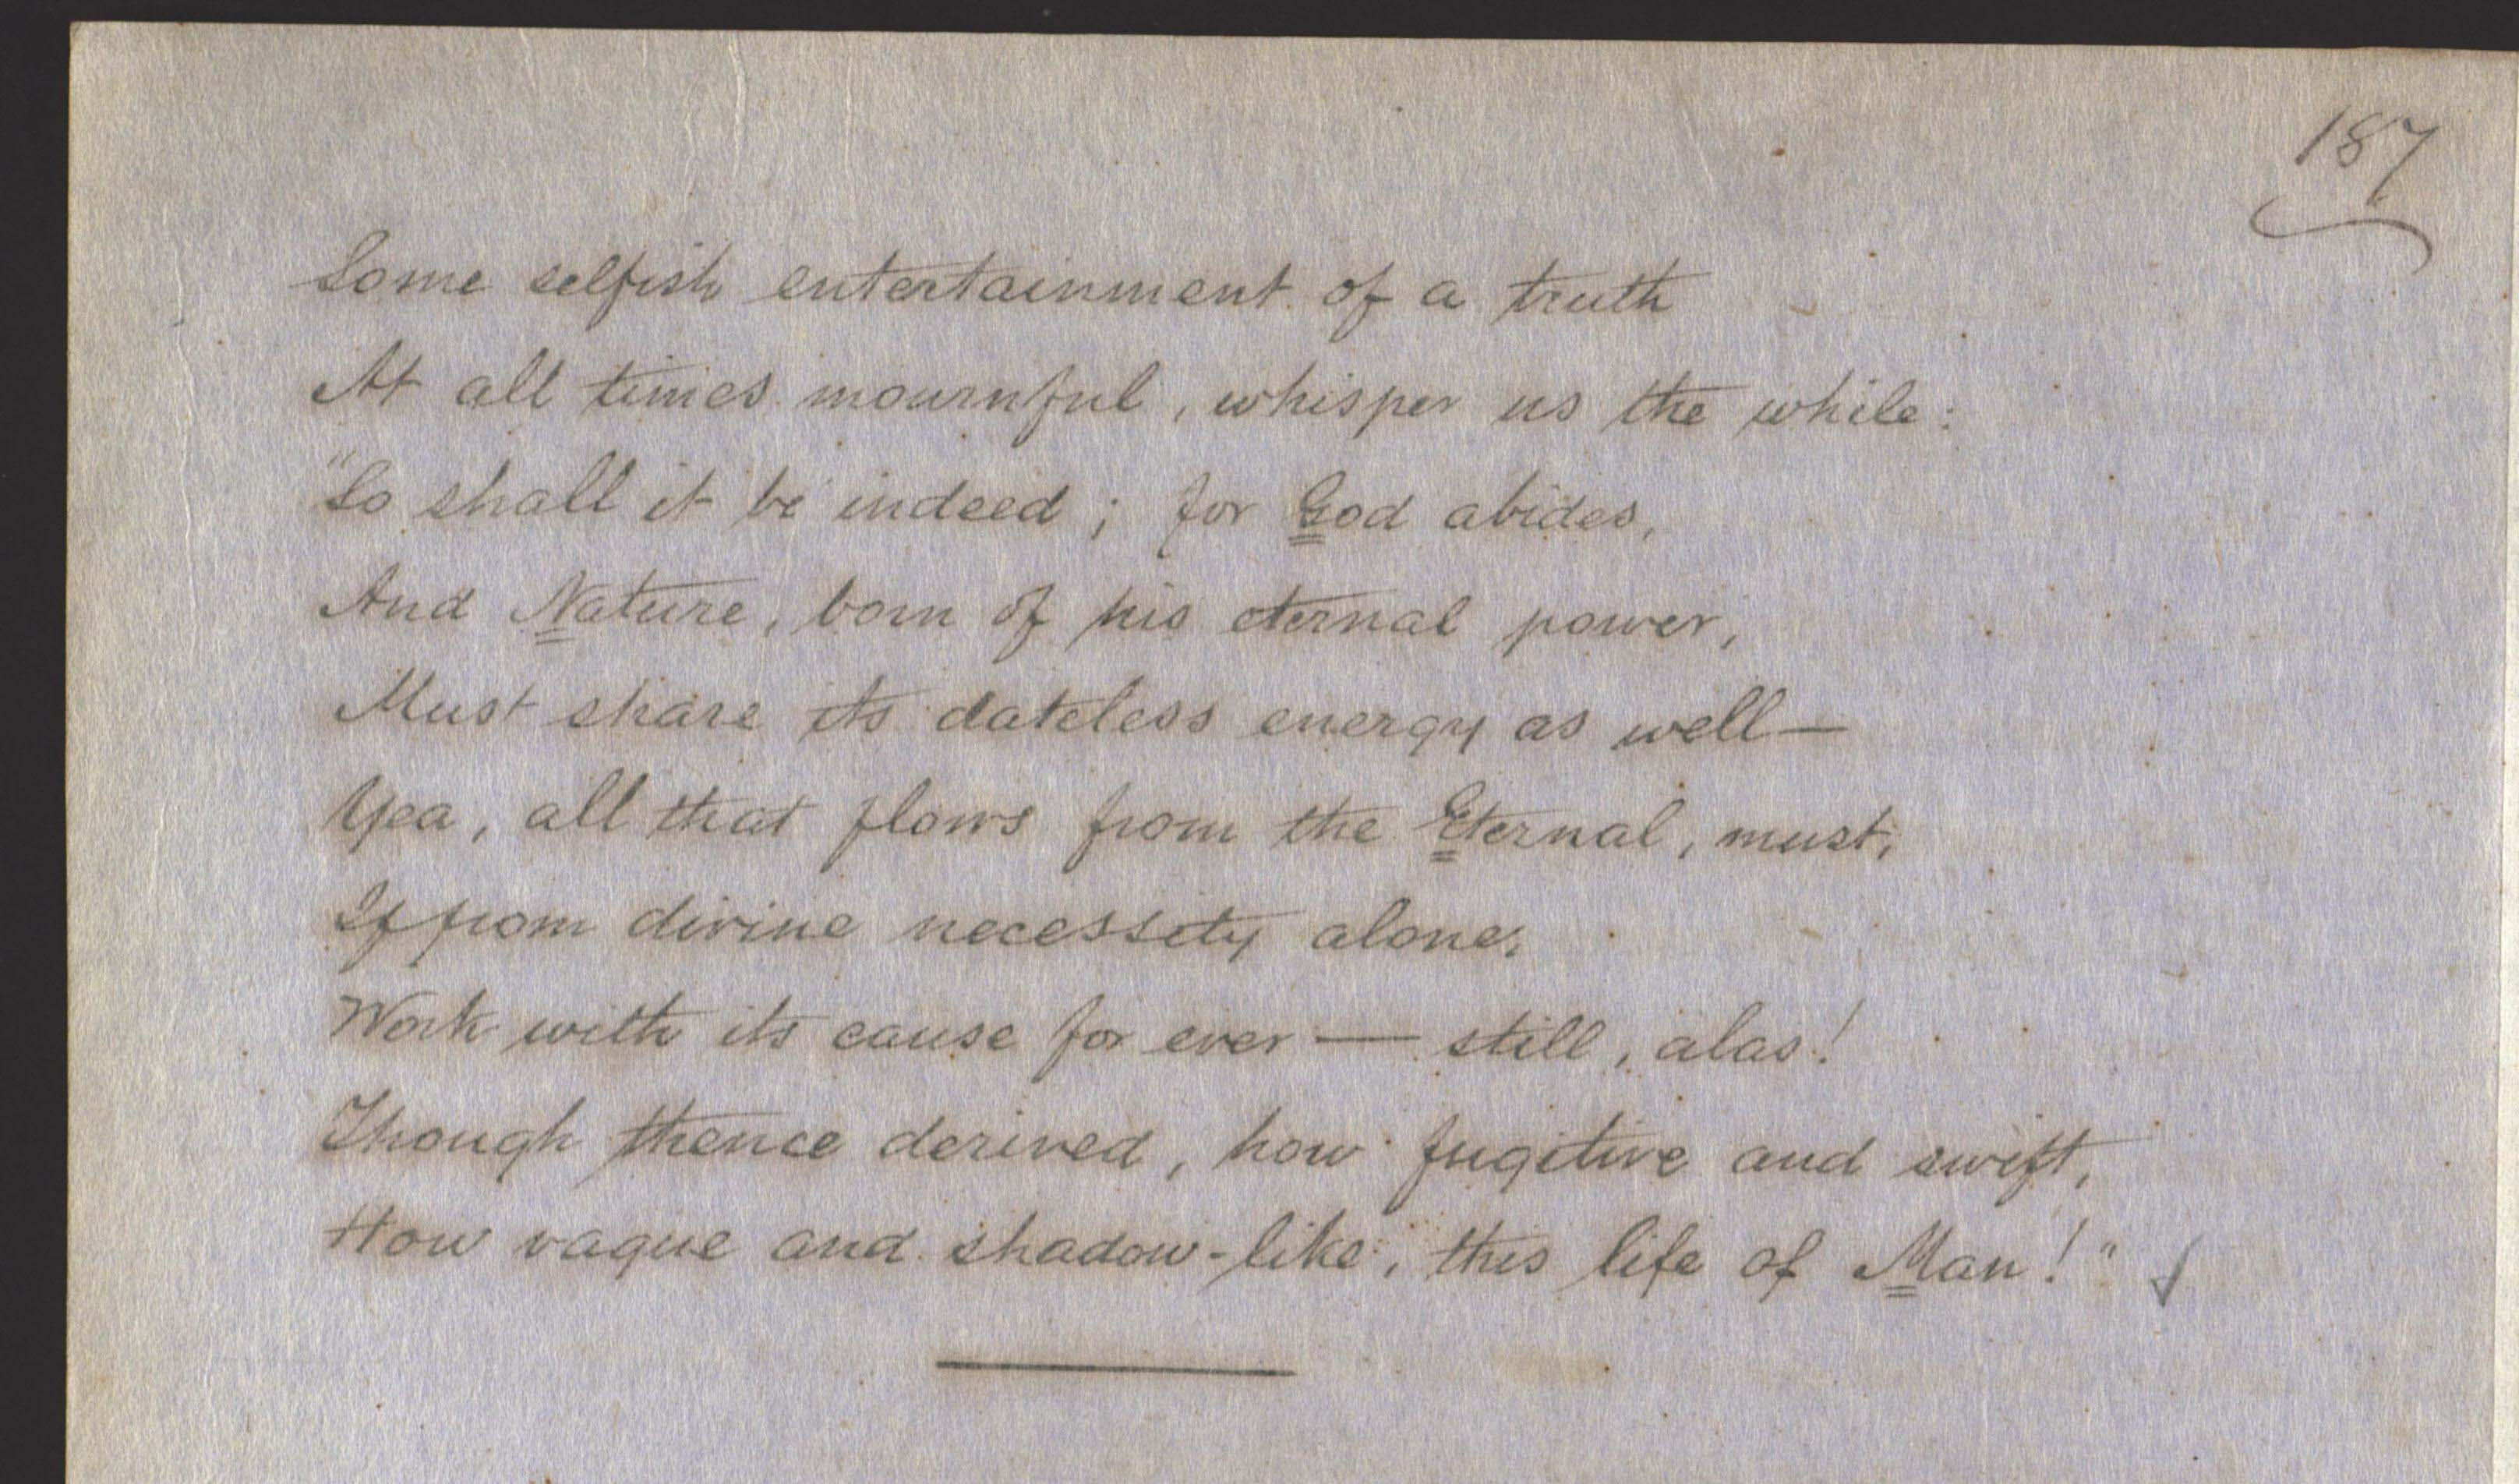 187
Some selfish entertainment of a truth
At all times mournful, whisper us the while:
"So shall it be indeed; for God abides,
And Nature, born of his eternal power,
Must share its dateless energy as well—
Yea, all that flows from the Eternal, must,
If from divine necessity alone,
Work with its cause for ever — still, alas!
Though thence derived, how fugitive and swift,
How vague and shadow-like, this life of Man!"